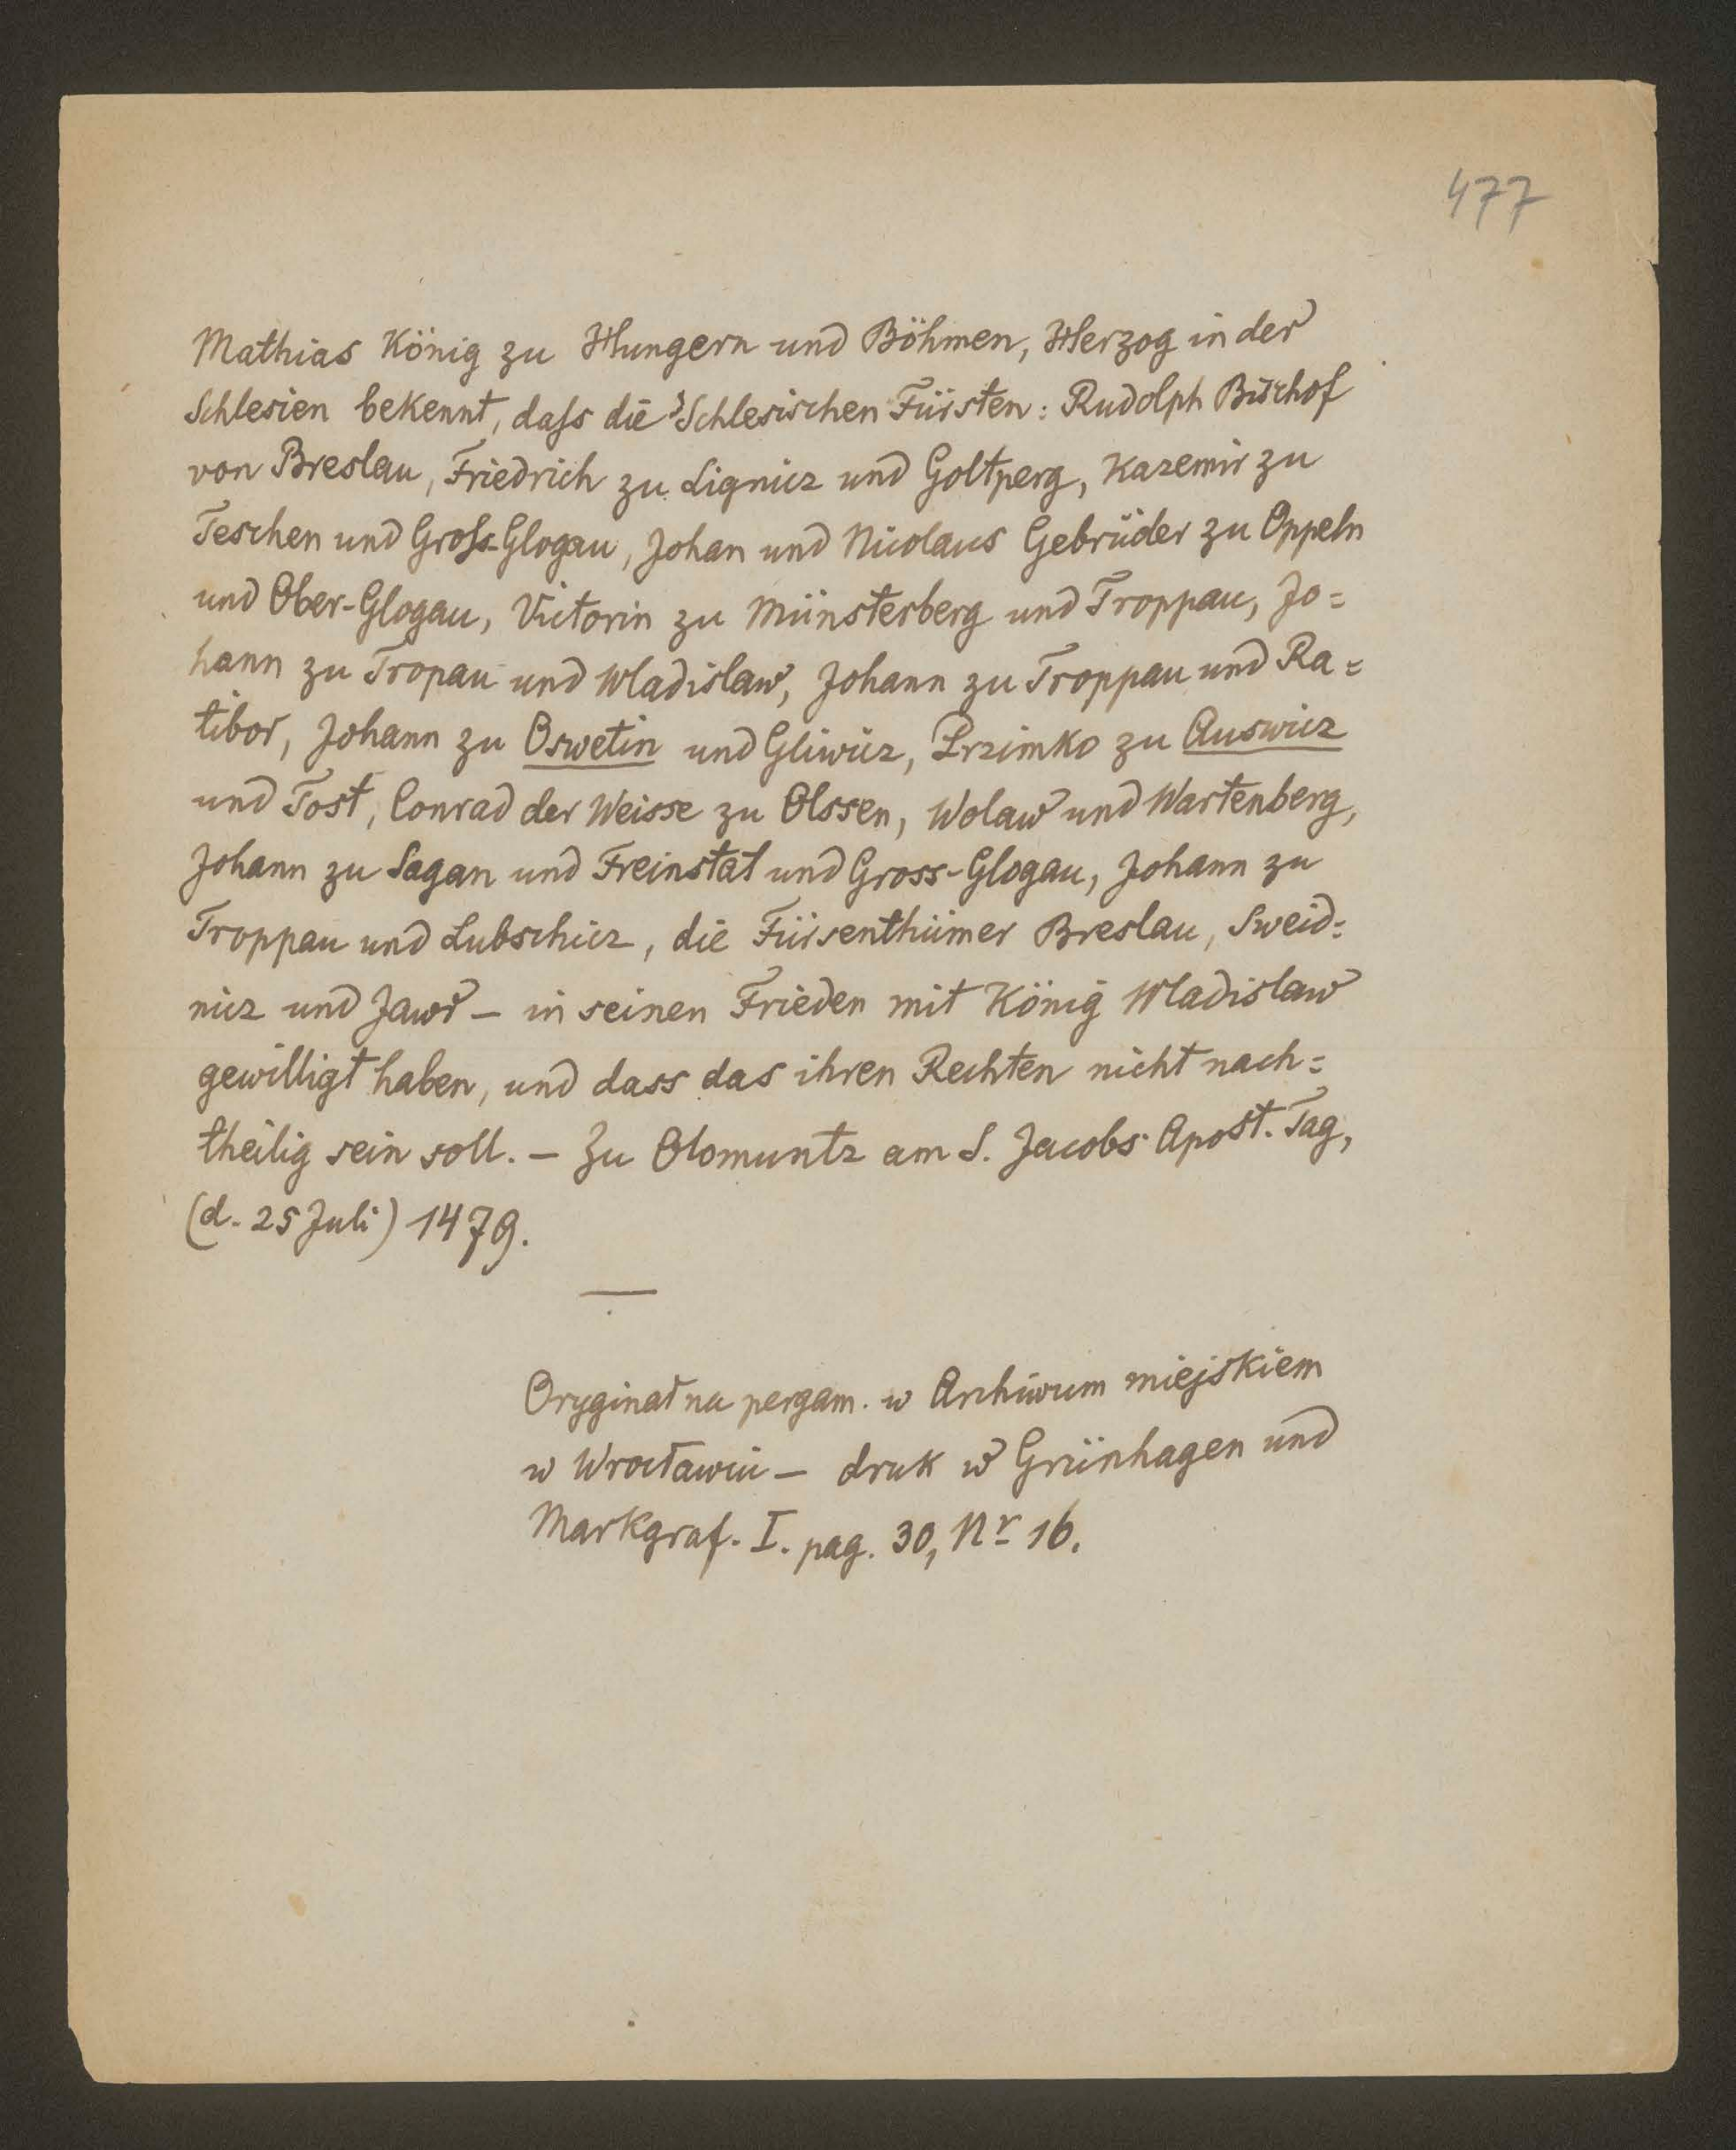 477
Mathias König zu Hungern und Böhmen, Herzog in der
Schlesien bekennt, daſs die Schlesischen Fürsten: Rudolph Bischof
von Breslau, Friedrich zu Lignicz und Goltperg, Kazemir zu
Teschen und Groſs-Glogau, Johan und Nicolaus Gebrüder zu Oppeln
und Ober-Glogau, Victorin zu Münsterberg und Troppau, Jo=
hann zu Tropau und Wladislaw, Johann zu Troppau und Ra=
tibor, Johann zu Oswetin und Gliwicz, Przimko zu Auswicz
und Tost, Conrad der Weisse zu Olssen, Wolaw und Wartenberg,
Johann zu Sagan und Freinstat und Gross-Glogau, Johann zu
Troppau und Lubschicz, die Fürsenthümer Breslau, Sweid=
nicz und Jawr — in seinen Frieden mit König Wladislaw
gewilligt haben, und dass das ihren Rechten nicht nach=
theilig sein soll. — Zu Olomuntz am S. Jacobs Apost. Tag,
(d. 25 Juli) 1479.
Oryginał na pergam. w Archiwum miejskiem
w Wrocławiu — druk w Grünhagen und
Markgraf. I. pag. 30, Nr 16.